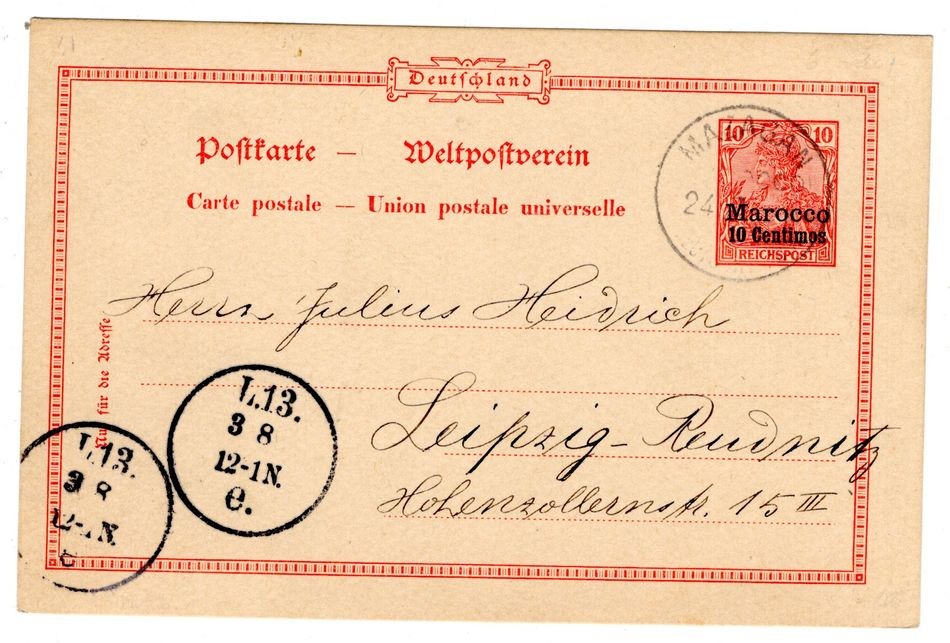 Deutschland
Postkarte — Weltpostverein
Carte postale — Union postale universelle
10 10
Marocco
10 Centimos
REICHSPOST
MAZAGAN
24
Herrn Julius Heidrich
Leipzig-Reudnitz
Hohenzollernstr. 15 III
Nur für die Adresse
L.13.
3 8
12-1N.
e.
L.13.
3 8
12-1N.
e